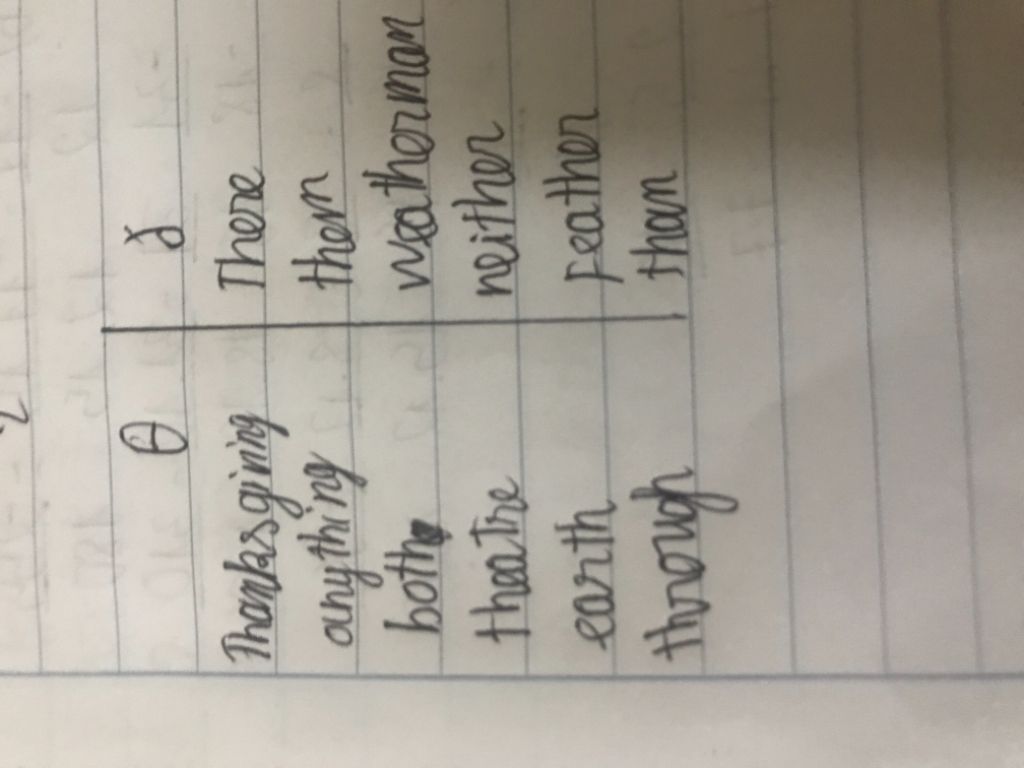 θ ð
Thanksgiving There
anything them
both weatherman
theatre neither
earth feather
through than